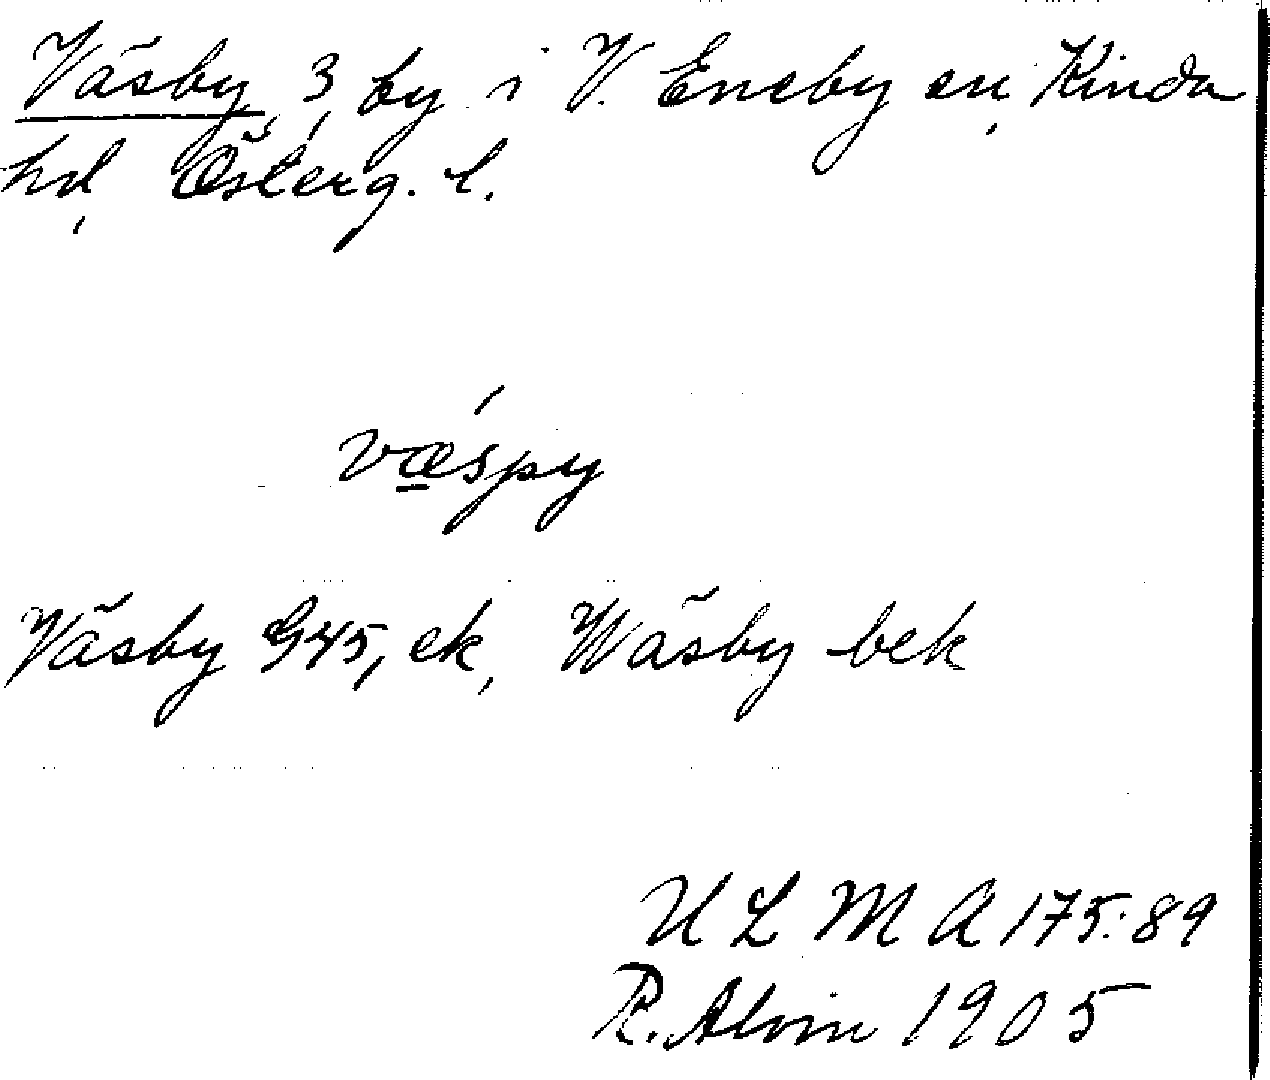 Väsby, 3, by i V. Eneby sn, Kinda
hd, Österg. l.
vǽ̱spy
Väsby G45, ek, Wäsby bek
ULMA 175:89
R. Alvin 1905